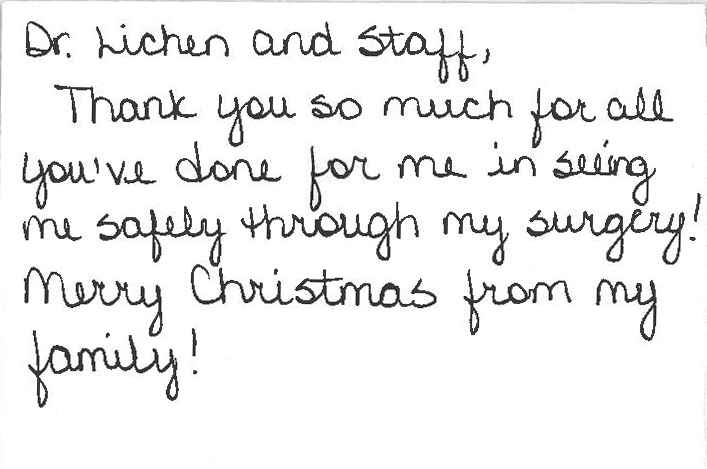 Dr. Lichen and staff,
Thank you so much for all
you've done for me in seeing
me safely through my surgery!
Merry Christmas from my
family!